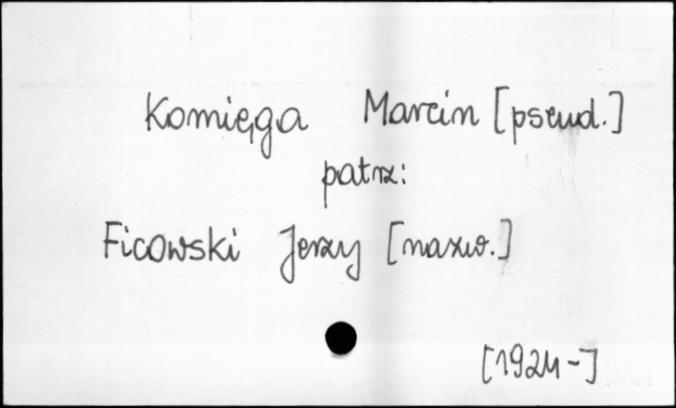 Komięga Marcin [pseud.]
patrz:
Ficowski Jerzy [nazw.]
[1924-]